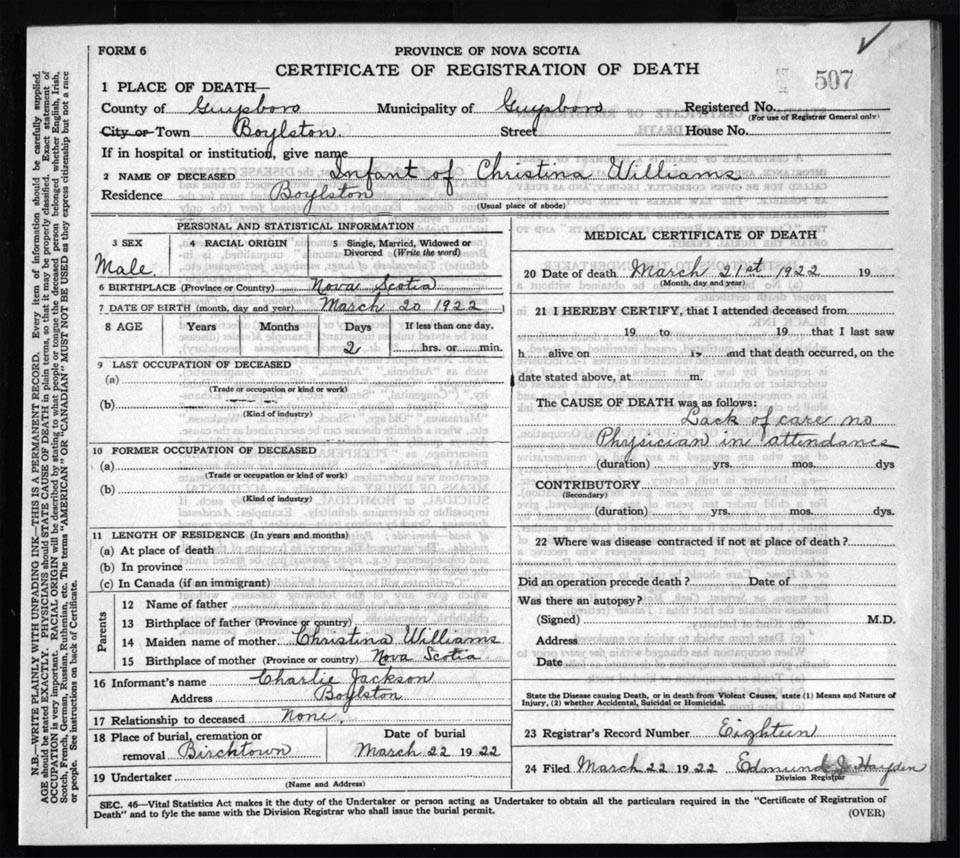 FORM 6
PROVINCE OF NOVA SCOTIA
CERTIFICATE OF REGISTRATION OF DEATH
507
1 PLACE OF DEATH—
County of Guysboro Municipality of Guysboro Registered No.
(For use of Registrar General only)
City or Town Boylston. Street House No.
If in hospital or institution, give name
2 NAME OF DECEASED Infant of Christina Williams
Residence Boylston
(Usual place of abode)
PERSONAL AND STATISTICAL INFORMATION
3 SEX 4 RACIAL ORIGIN 5 Single, Married, Widowed or Divorced (Write the word)
Male.
6 BIRTHPLACE (Province or Country) Nova Scotia
7 DATE OF BIRTH (month, day and year) March 20 1922
8 AGE Years Months Days If less than one day,
2 hrs. or min.
9 LAST OCCUPATION OF DECEASED
(a)
(Trade or occupation or kind or work)
(b)
(Kind of industry)
10 FORMER OCCUPATION OF DECEASED
(a)
(Trade or occupation or kind of work)
(b)
(Kind of industry)
11 LENGTH OF RESIDENCE (In years and months)
(a) At place of death
(b) In province
(c) In Canada (if an immigrant)
Parents
12 Name of father
13 Birthplace of father (Province or country)
14 Maiden name of mother. Christina Williams
15 Birthplace of mother (Province or country) Nova Scotia
16 Informant's name Charlie Jackson
Address Boylston
17 Relationship to deceased none.
18 Place of burial, cremation or removal Bircktown
Date of burial
March 22 1922
19 Undertaker
(Name and Address)
MEDICAL CERTIFICATE OF DEATH
20 Date of death March 21st 1922 19
(Month, day and year)
21 I HEREBY CERTIFY, that I attended deceased from
19 to 19 that I last saw
h alive on 19 and that death occurred, on the
date stated above, at m.
The CAUSE OF DEATH was as follows:
Lack of care no
Physician in attendance
(duration) yrs. mos. dys
CONTRIBUTORY
(Secondary)
(duration) yrs. mos. dys.
22 Where was disease contracted if not at place of death?
Did an operation precede death? Date of
Was there an autopsy?
(Signed) M.D.
Address
Date
State the Disease causing Death, or in death from Violent Causes, state (1) Means and Nature of
Injury, (2) whether Accidental, Suicidal or Homicidal.
23 Registrar's Record Number Eighteen
24 Filed March 22 1922 Edmund J Hayden
Division Registrar
SEC. 46—Vital Statistics Act makes it the duty of the Undertaker or person acting as Undertaker to obtain all the particulars required in the "Certificate of Registration of
Death" and to fyle the same with the Division Registrar who shall issue the burial permit.
(OVER)
N.B.—WRITE PLAINLY WITH UNFADING INK—THIS IS A PERMANENT RECORD. Every item of information should be carefully supplied.
AGE should be stated EXACTLY. PHYSICIANS should STATE CAUSE OF DEATH in plain terms, so that it may be properly classified. Exact statement of
OCCUPATION is very important. RACIAL ORIGIN will be described by stating to what people or tongue the deceased person belonged whether English, Irish,
Scotch, French, German, Russian, Ruthenian, etc. The terms "AMERICAN" OR "CANADIAN" MUST NOT BE USED as they express citizenship but not a race
or people. See instructions on back of Certificate.